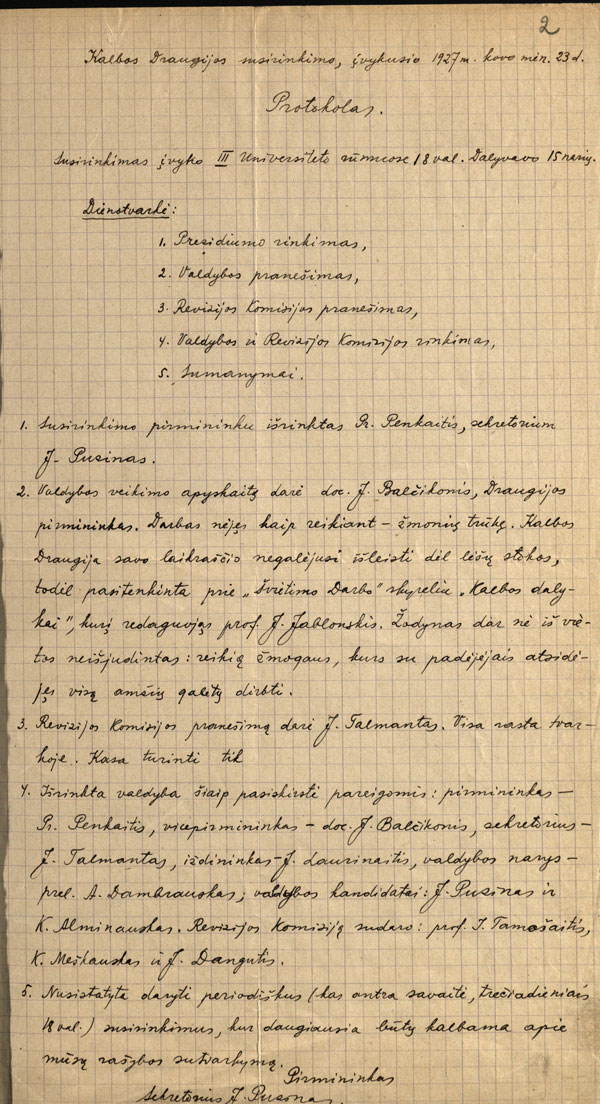 2
Kalbos Draugijos susirinkimo, įvykusio 1927 m. kovo mėn. 23 d.
Protokolas.
Susirinkimas įvyko III Universiteto rūmuose 18 val. Dalyvavo 15 narių.
Dienotvarkė:
1. Prezidiumo rinkimas,
2. Valdybos pranešimas,
3. Revizijos Komisijos pranešimas,
4. Valdybos ir Revizijos Komisijos rinkimas,
5. Sumanymai.
1. Susirinkimo pirmininku išrinktas Pr. Penkaitis, sekretorium
J. Puzinas.
2. Valdybos veikimo apyskaitą darė doc. J. Balčikonis, Draugijos
pirmininkas. Darbas nėjęs kaip reikiant – žmonių trūkę. Kalbos
Draugija savo laikraščio negalėjusi išleisti dėl lėšų stokos,
todėl pasitenkinta prie „Švietimo Darbo" skyreliu „Kalbos daly-
kai", kurį redagavęs prof. J. Jablonskis. Žodynas dar nė iš vie-
tos neišjudintas: reikią žmogaus, kurs su padėjėjais atsidė-
jęs visą amžių galėtų dirbti.
3. Revizijos Komisijos pranešimą darė J. Talmantas. Visa rasta tvar-
koje. Kasa turinti tik
4. Išrinkta valdyba šiaip pasiskirstė pareigomis: pirmininkas –
Pr. Penkaitis, vicepirmininkas – doc. J. Balčikonis, sekretorius –
J. Talmantas, iždininkas – J. Laurinaitis, valdybos narys –
prel. A. Dambrauskas; valdybos kandidatai: J. Puzinas ir
K. Alminauskas. Revizijos Komisiją sudaro: prof. I. Tamošaitis,
K. Meškauskas ir J. Dangutis.
5. Nusistatyta daryti periodiškus (kas antra savaitė, trečiadieniais
18 val.) susirinkimus, kur daugiausia būtų kalbama apie
mūsų rašybos sutvarkymą.
Pirmininkas
Sekretorius J. Puzinas.